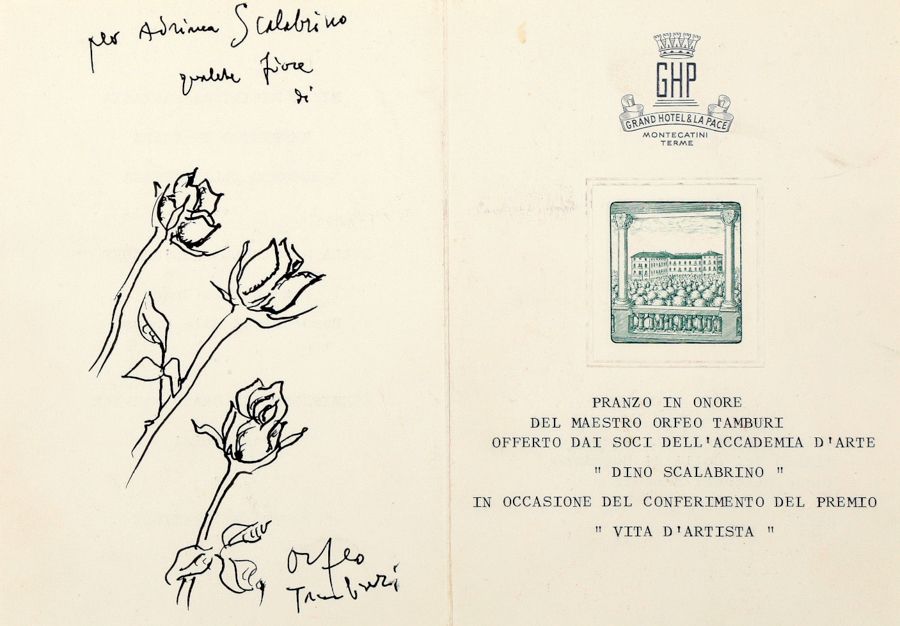 per Adriana Scalabrino
qualche fiore
di
Orfeo
Tamburi
GHP
GRAND HOTEL & LA PACE
MONTECATINI
TERME
PRANZO IN ONORE
DEL MAESTRO ORFEO TAMBURI
OFFERTO DAI SOCI DELL'ACCADEMIA D'ARTE
" DINO SCALABRINO "
IN OCCASIONE DEL CONFERIMENTO DEL PREMIO
" VITA D'ARTISTA "